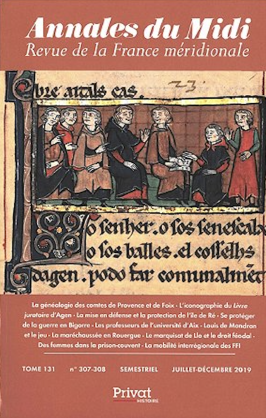 Annales du Midi
Revue de la France méridionale
bre artals cas.
23.
o senher. o sos senescals
o sos balles. el cosselhs
dagen. podo far comunalment
La généalogie des comtes de Provence et de Foix - L'iconographie du Livre
juratoire d'Agen - La mise en défense et la protection de l'île de Ré - Se protéger
de la guerre en Bigorre - Les professeurs de l'université d'Aix - Louis de Mandran
et le jeu - La maréchaussée en Rouergue - Le marquisat de L'Isle et le droit féodal -
Des femmes dans la prison-couvent - La mobilité interrégionale des FFI
TOME 131 n° 307-308 SEMESTRIEL JUILLET-DÉCEMBRE 2019
Privat
HISTOIRE